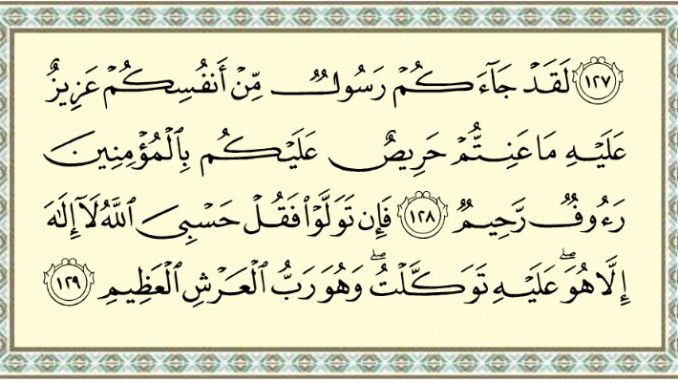 ١٢٧ لَقَدۡ جَآءَكُمۡ رَسُولٌ مِّنۡ أَنفُسِكُمۡ عَزِيزٌ
عَلَيۡهِ مَا عَنِتُّمۡ حَرِيصٌ عَلَيۡكُم بِٱلۡمُؤۡمِنِينَ
رَءُوفٌ رَّحِيمٌ ١٢٨ فَإِن تَوَلَّوۡاْ فَقُلۡ حَسۡبِيَ ٱللَّهُ لَآ إِلَٰهَ
إِلَّا هُوَۖ عَلَيۡهِ تَوَكَّلۡتُۖ وَهُوَ رَبُّ ٱلۡعَرۡشِ ٱلۡعَظِيمِ ١٢٩